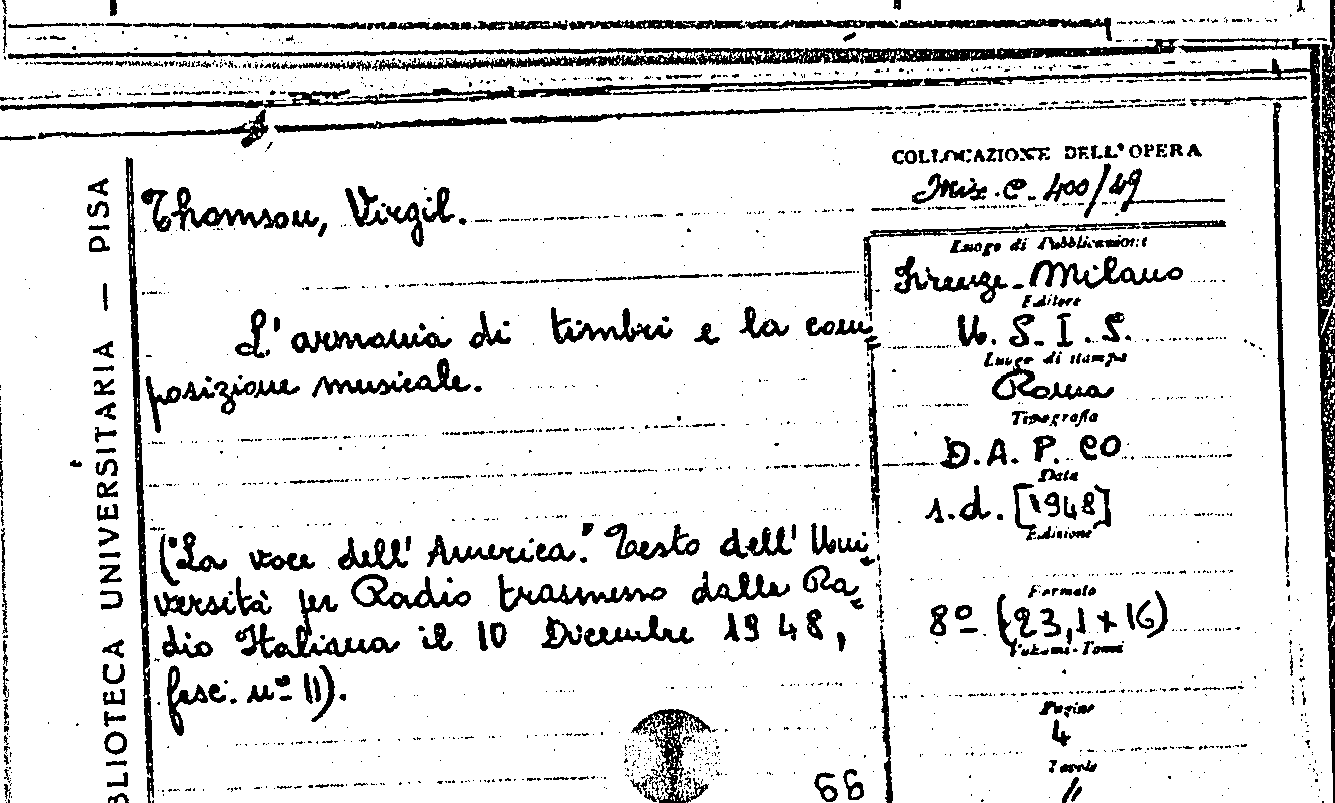 BIBLIOTECA UNIVERSITARIA — PISA
Thomson, Virgil.
L'armonia di timbri e la com=
posizione musicale.
("La voce dell'America". Testo dell'Uni=
versità per Radio trasmesso dalle Ra=
dio Italiana il 10 Dicembre 1948,
fasc. nº 11).
66
COLLOCAZIONE DELL'OPERA
Misc. C. 400/49
Luogo di Pubblicazione
Firenze-Milano
Editore
U. S. I. S.
Luogo di stampa
Roma
Tipografia
D. A. P. CO
Data
s.d. [1948]
Edizione
Formato
8º (23,1 x 16)
Volumi-Tomi
Pagine
4
Tavole
//